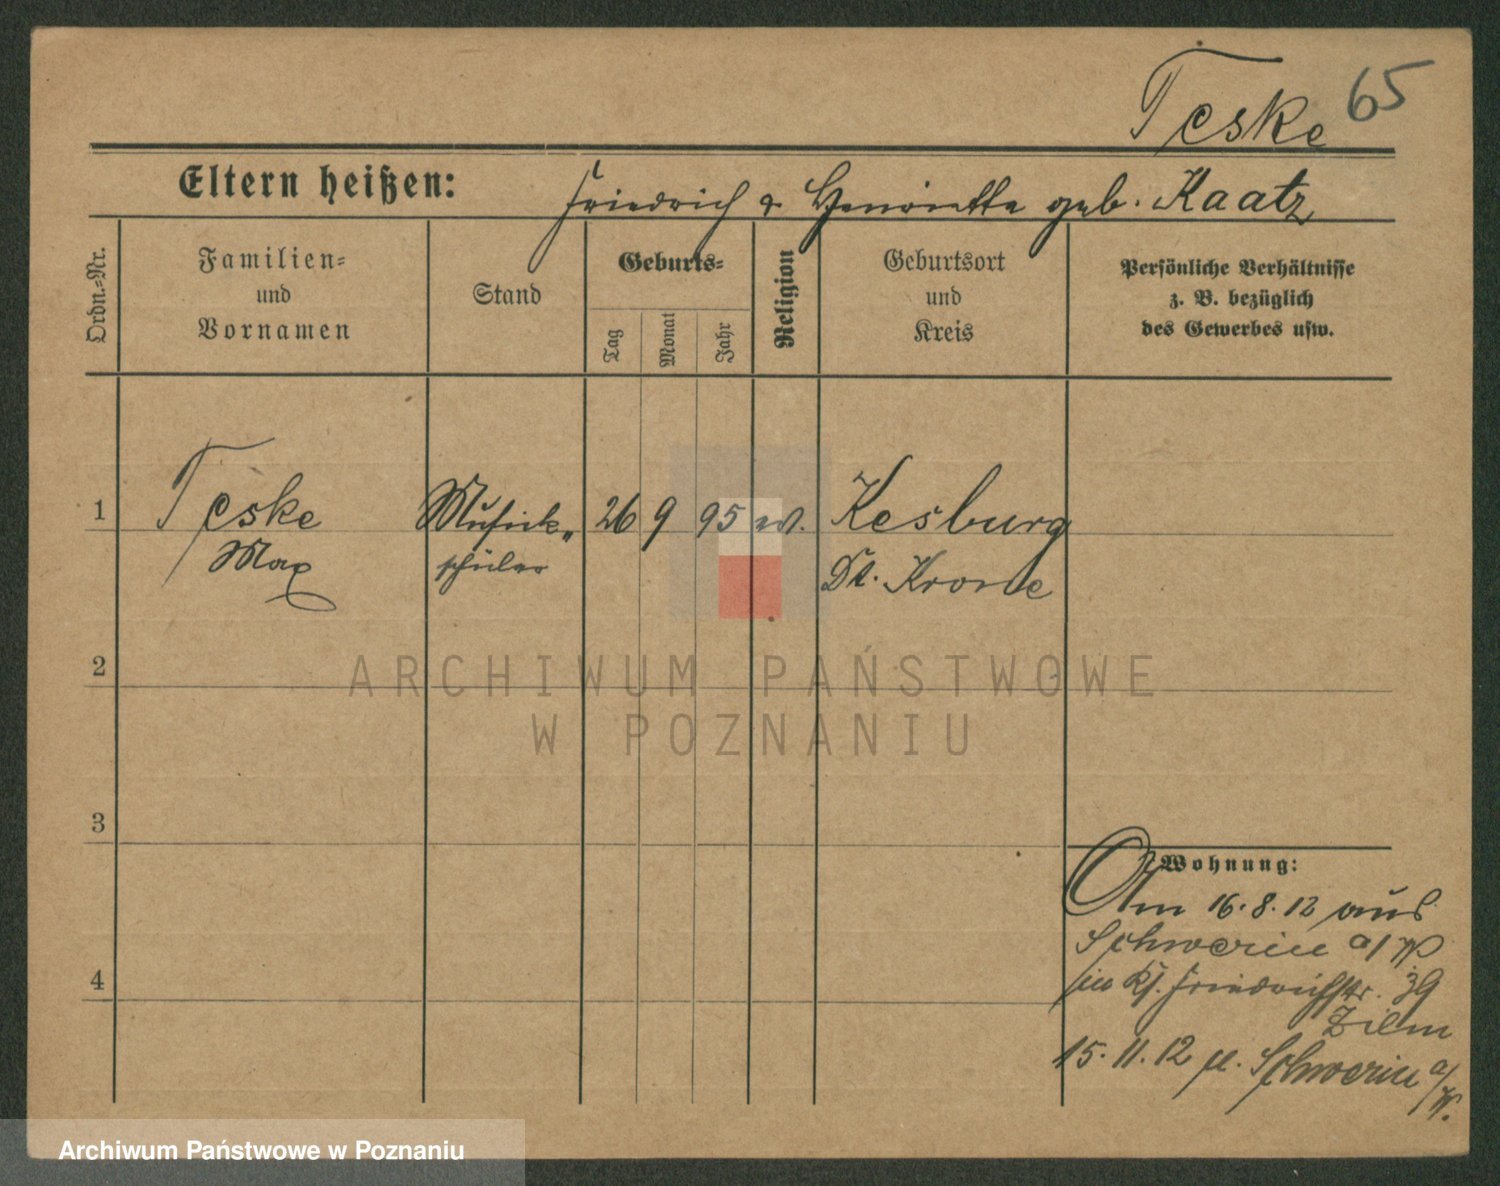 Teske 65
Eltern heißen: Friedrich & Henriette geb. Kaatz
Ordn.-Nr.
Familien-
und
Vornamen
Stand
Geburts-
Tag
Monat
Jahr
Religion
Geburtsort
und
Kreis
Persönliche Verhältnisse
z. B. bezüglich
des Gewerbes usw.
1 Teske Musick- 26 9 95 ev. Kesburg
Max schüler Dt. Krone
2
3
4
Wohnung:
Am 16.8.12 aus
Schwerin a/W
in Kj. Friedrichstr. 39
15.11.12 Schwerin a/W.
ARCHIWUM PAŃSTWOWE
W POZNANIU
Archiwum Państwowe w Poznaniu